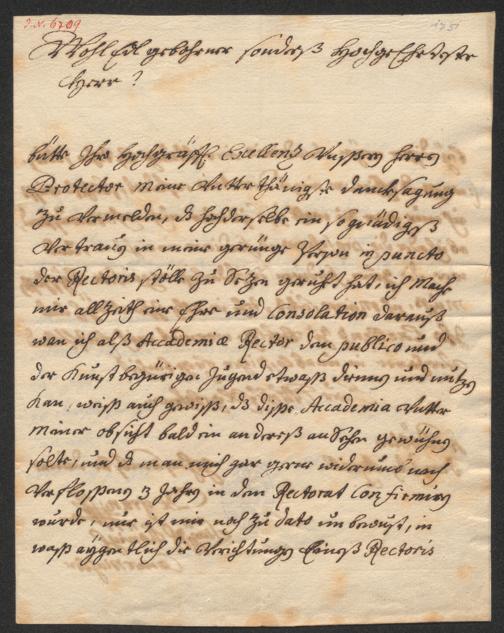 J.N. 6709
1751
WohlEdlgebohrner sonderß HochgeEhrtester
Herr ?
bitte Ihro Hochgräffl. Excellenz Unsseren Herrn
Protector meine Unterthänigste dancksagung
zu vermelden, dz hochderselbe ein so gnädigeß
Vertrauen in meine geringe Person in puncto
der Rectoris stölle zu Sezen geruht hat; ich mache
mir allzeith eine Ehre und Consolation darauß
wan ich alß Academiæ Rector dem publico und
der Kunst begürigen Jugend etwaß dienen und nutzen
kan, weiß auch gewiß, dz disse Accademia Unter
meiner obsicht bald ein anderes ansehen gewühnen
solte, und dz man mich gar gerne widerumb nach
verflossenen 3 Jahren in dem Rectorat Confirmiren
wurde, nur ist mir noch zu dato unbewust, in
waß aÿgentlich die Verichtungen Eineß Rectoris